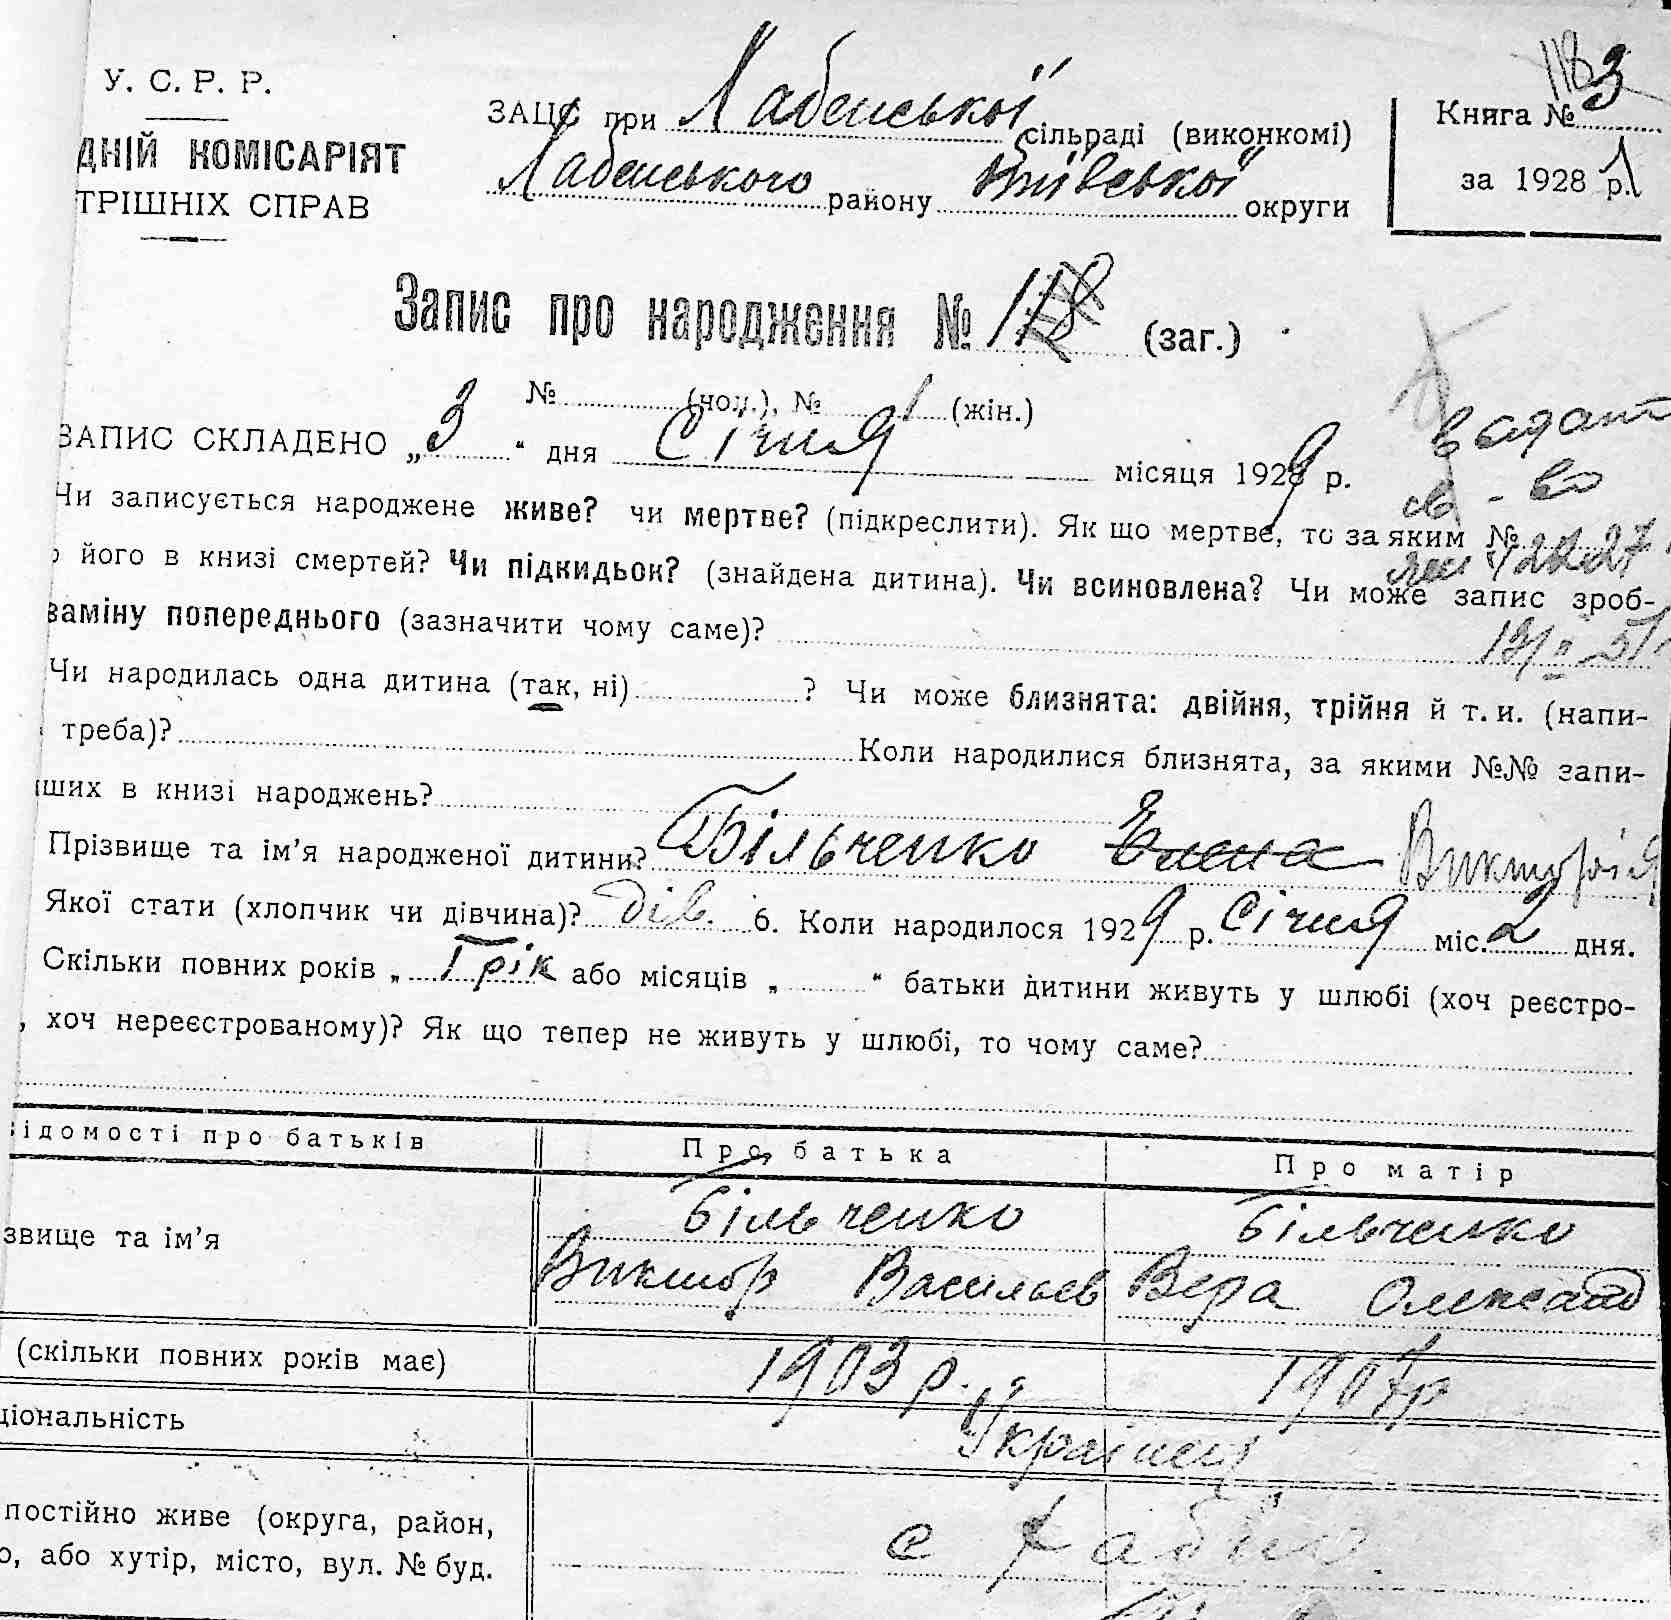 У. С. Р. Р.
ДНІЙ КОМІСАРІЯТ
ТРІШНІХ СПРАВ
ЗАЦС при Лабенської сільраді (виконкомі)
Лабенського району Київської округи
Книга № 3
за 1928 р.
Запис про народження № 118 (заг.)
№ (чол.), № 1 (жін.)
ЗАПИС СКЛАДЕНО „3“ дня Січня місяця 1929 р.
Чи записується народжене живе? чи мертве? (підкреслити). Як що мертве, то за яким №
його в книзі смертей? Чи підкидьок? (знайдена дитина). Чи всиновлена? Чи може запис зроб-
заміну попереднього (зазначити чому саме)?
Чи народилась одна дитина (так, ні) ? Чи може близнята: двійня, трійня й т. и. (напи-
треба)? Коли народилися близнята, за якими №№ запи-
ших в книзі народжень?
Прізвище та ім’я народженої дитини? Більченко Елена Викторія
Якої стати (хлопчик чи дівчина)? дів. 6. Коли народилося 1929 р. Січня міс. 2 дня.
Скільки повних років „ 1 рік або місяців „ “ батьки дитини живуть у шлюбі (хоч реєстро-
, хоч нереєстрованому)? Як що тепер не живуть у шлюбі, то чому саме?
ідомості про батьків Про батька Про матір
звище та ім’я Більченко Більченко
Виктор Васильев Вера Олександ
(скільки повних років має) 1903 р. 1907 р
ціональність Українці
постійно живе (округа, район, с
о, або хутір, місто, вул. № буд.